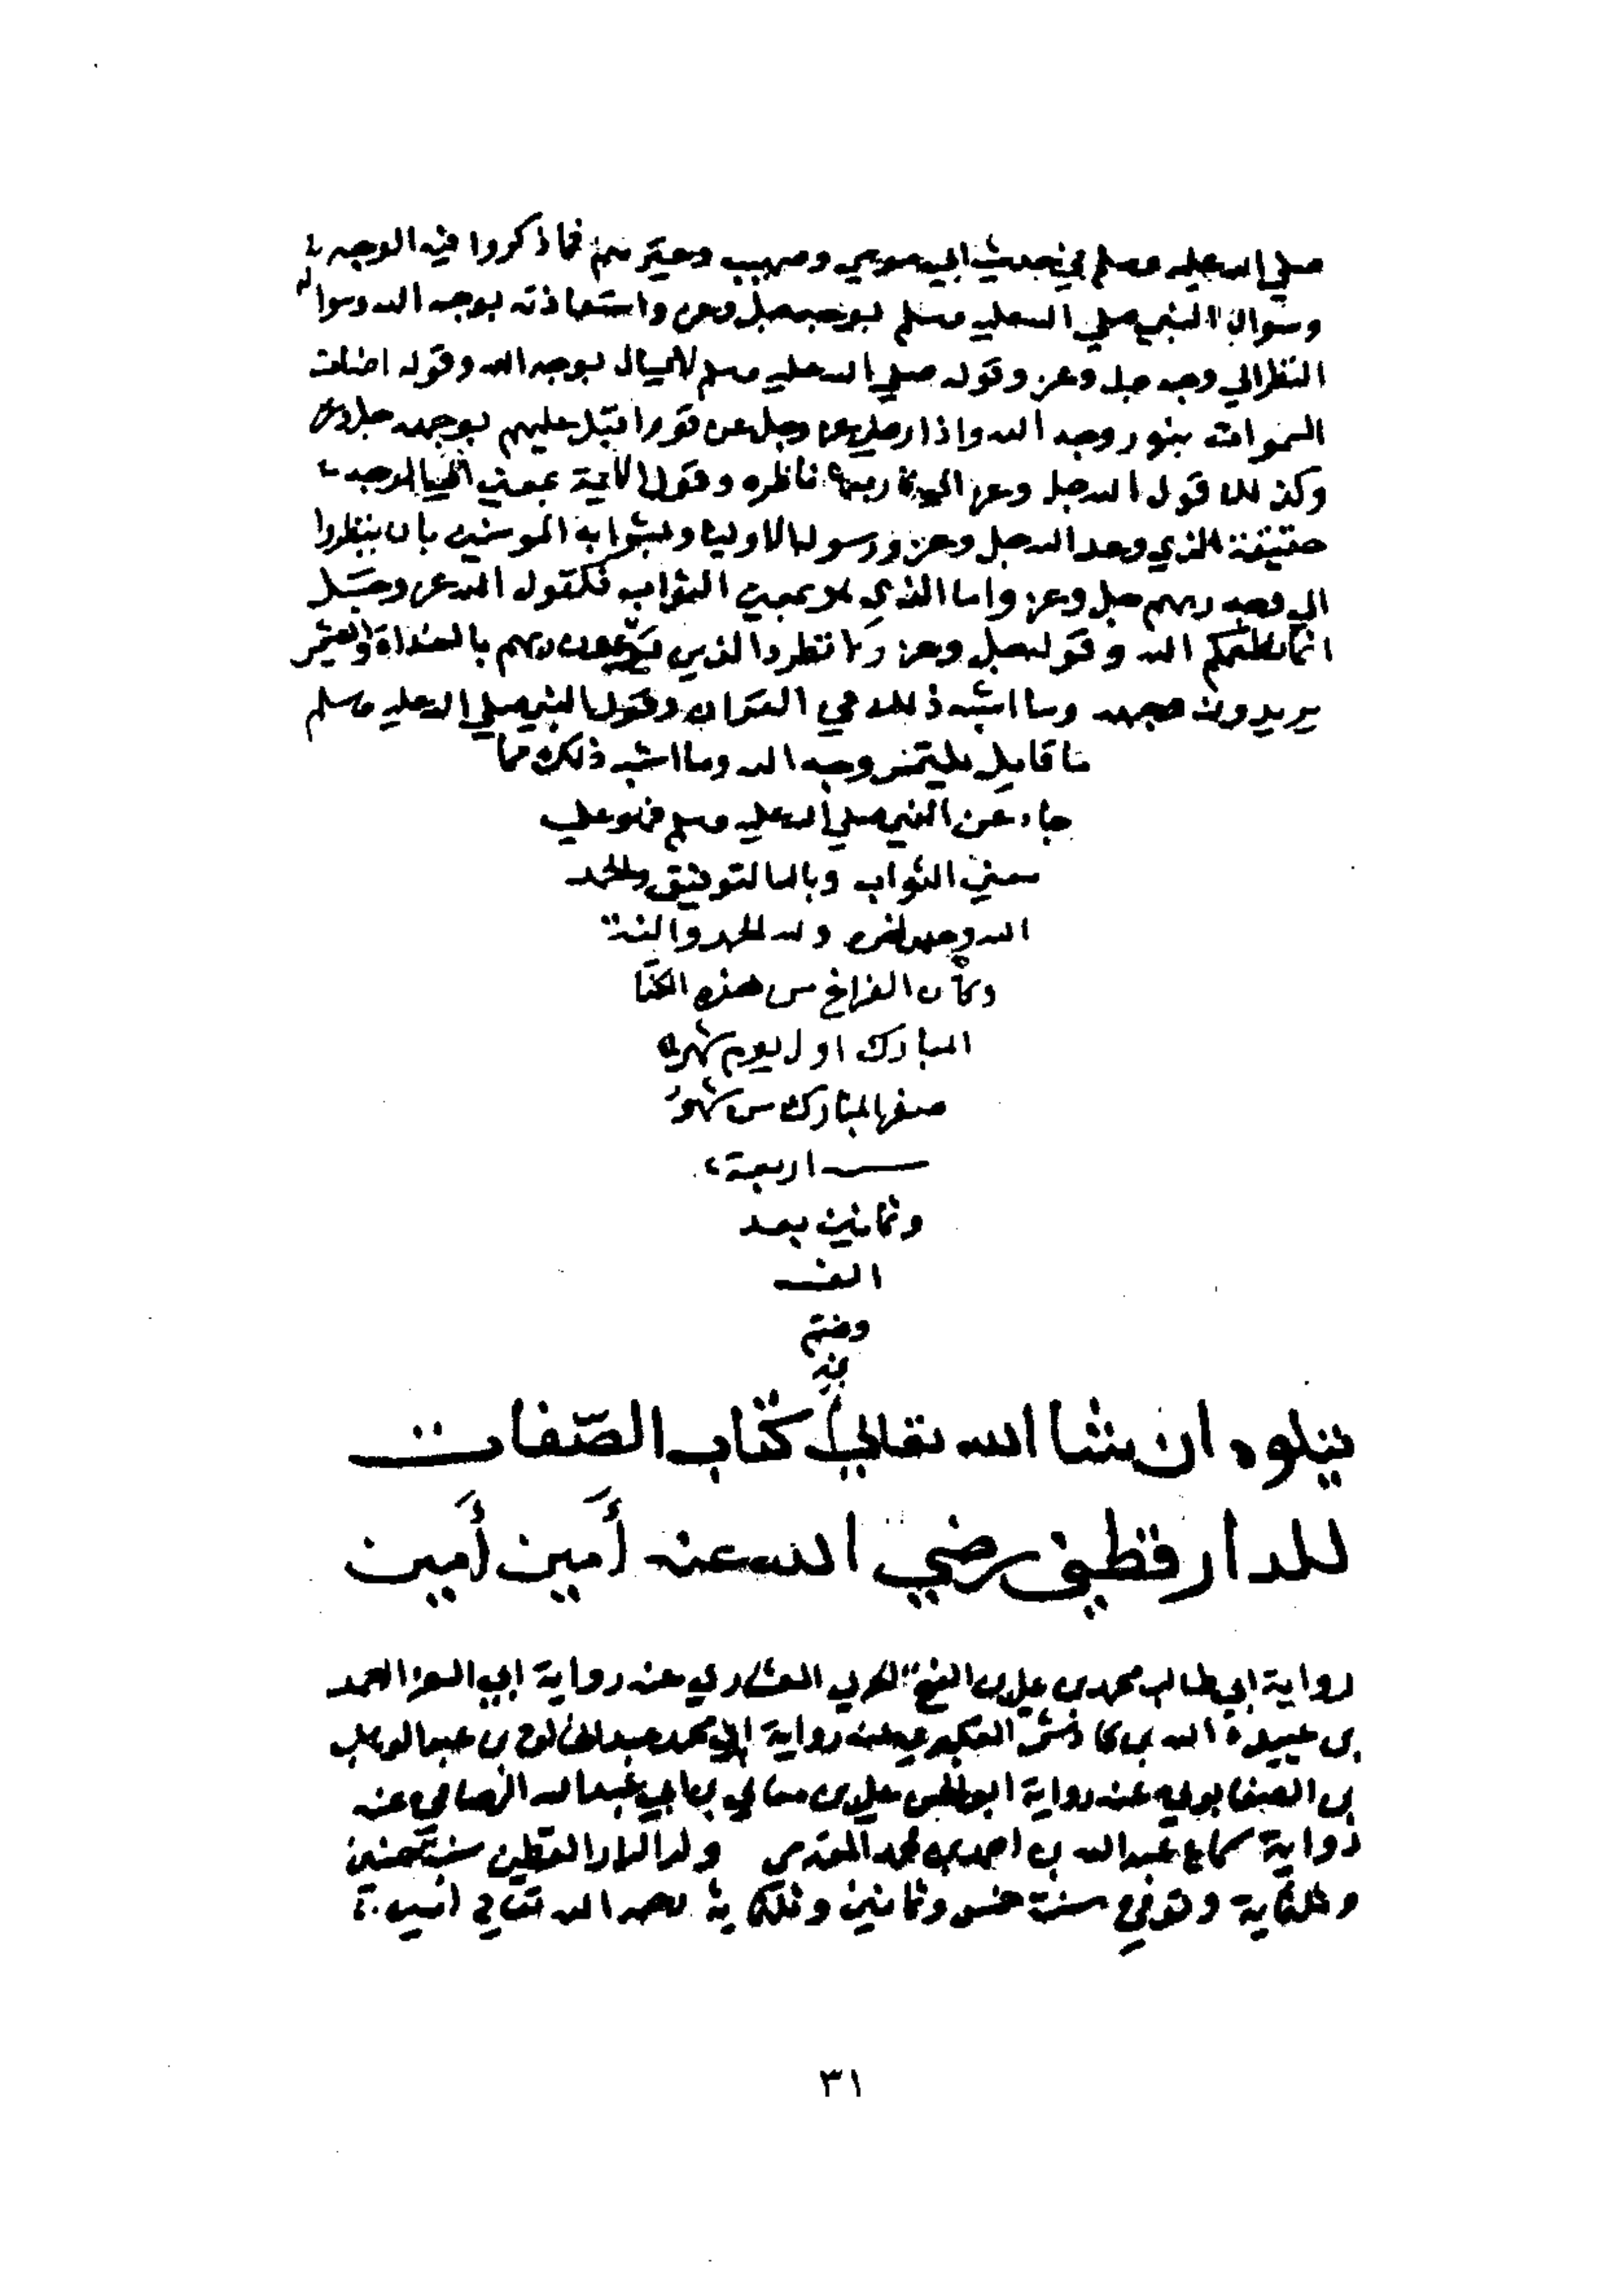 صلي الله عليه وسلم في حديث ابي موسي وصهيب وغيرهم مما ذكروا فيه الوجه
وسوال النبي صلي الله عليه وسلم بوجهه جل وعز واستعاذته بوجه الله وسواله
النظر الي وجهه جل وعز وقوله صلي الله عليه وسلم لا يسال بوجه الله وقوله اضات
السموات بنور وجه الله واذا رضي عز وجل عن قوم اقبل عليهم بوجهه جل وعز
وكذلك قول الله جل وعز الي ربها ناظره وقول الائمة بمعني الوجه
حقيقة الذي وعد الله جل وعز ورسوله الاوليا وبشر به المومنين بان ينظروا
الي وجه ربهم جل وعز واما الذي هو بمعني الثواب فكقول الله عز وجل
انما نطعمكم لوجه الله وقوله جل وعز ولا تطرد الذين يدعون ربهم بالغداة والعشي
يريدون وجهه وما اشبه ذلك في القران وقول النبي صلي الله عليه وسلم
ما قايل يلتمس وجه الله وما اشبه ذلك مما
جاء عن النبي صلي الله عليه وسلم فهو علي
معني الثواب وبالله التوفيق والحمد
الله وحده وله الحمد والمنة
وكان الفراغ من هذه الكتا
المبارك اول يوم شهر
صفر المبارك من شهور
اربعة
وثمانين بعد
الف
وختم
يتلوه ان شا الله تعالي كتاب الصّفات
للدارقطني رضي الله عنه أمين أمين
رواية ابي طالب محمد بن علي بن الفتح الحربي العشاري عنه رواية ابي العز احمد
بن عبيد الله بن كادش العكبري عنه رواية ابي محمد عبد الخالق بن عبد الوهاب
بن الصابوني عنه رواية ابو الحسن علي بن معالي بن ابي عبد الله الرصافي عنه
رواية سماع عبد الله بن احمد بن محمد المقدسي ولد الدارالقطني سنة
وثلثماية وتوفي سنة خمس وثمانين وثلثماية رحمه الله تعالي امين
٣١